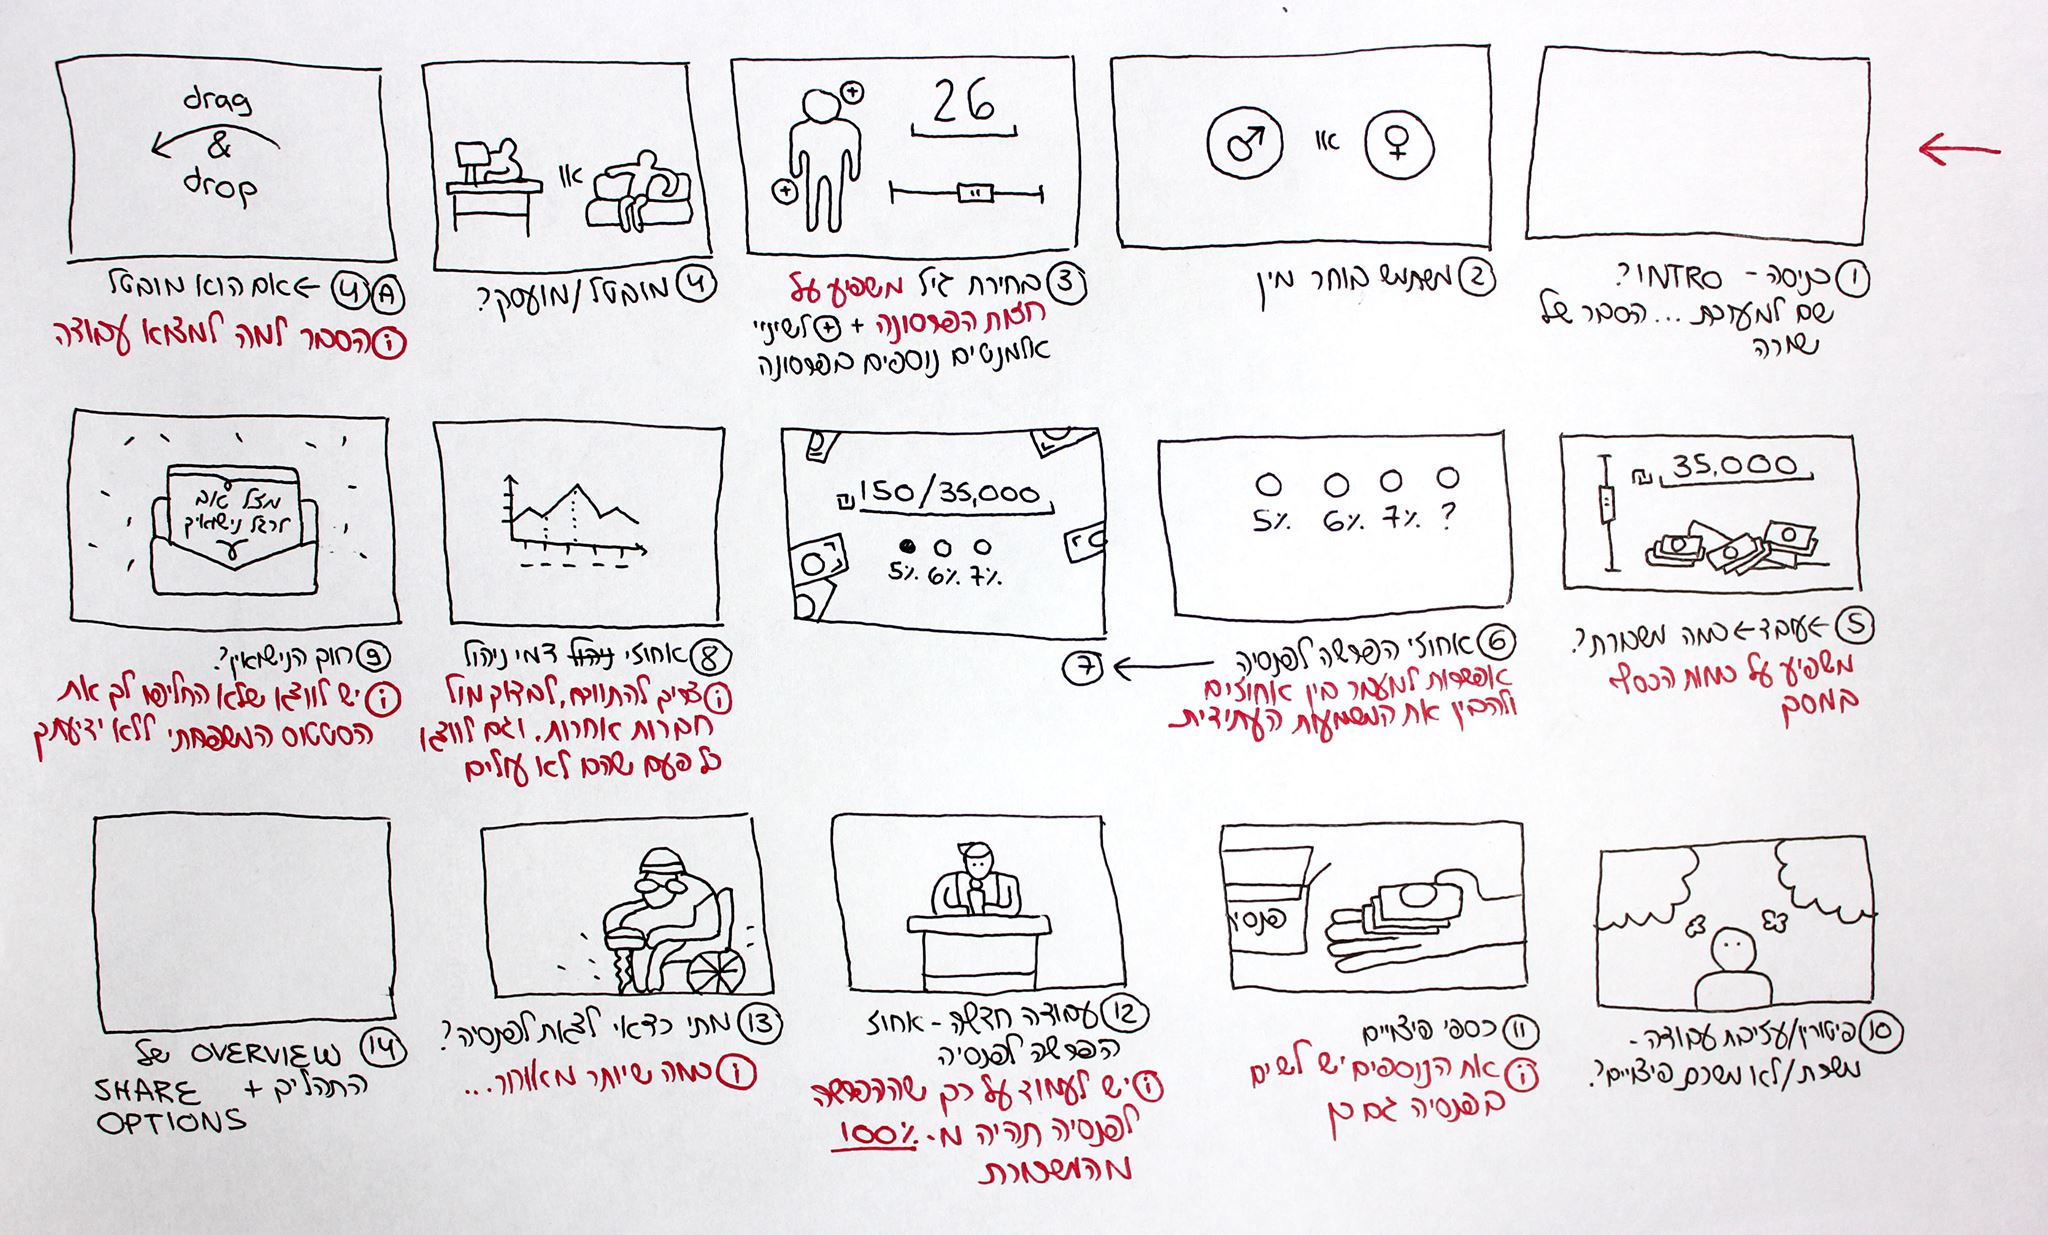 או
26
או
drag
&
drop
① כניסה - INTRO?
שם למערכת... הסבר של
שורה
② משתמש בוחר מין
③ בחירת גיל משפיע על
חזות הפרסונה + ⊕ לשינויי
אלמנטים נוספים בפרסונה
④ מובטל/מועסק?
④Ⓐ ← אם הוא מובטל
ⓘ הסבר למה למצוא עבודה
₪ 35,000
5% 6% 7% ?
₪ 150/35,000
5% 6% 7%
מזל טוב
לרגל נישואיך
⑤ ← עובד ← כמה משכורת?
משפיע על כמות הכסף
במסך
⑥ אחוזי הפרשה לפנסיה
אפשרות למעבר בין אחוזים
ולהבין את המשמעות העתידית.
⑦
⑧ אחוזי ניהול דמי ניהול
ⓘ צריך להתווכח, לבדוק מול
חברות אחרות. וגם לוודא
כל פעם שהם לא עולים
⑨ חוק הנישואין?
ⓘ יש לוודא שלא החליפו לך את
הסטטוס המשפחתי ללא ידיעתך
פנסיה
⑩ פיטורין/עזיבת עבודה -
משכת/לא משכת פיצויים?
⑪ כספי פיצויים
ⓘ את הנוספים יש לשים
בפנסיה גם כן
⑫ עבודה חדשה - אחוז
הפרשה לפנסיה
ⓘ יש לעמוד על כך שההפרשה
לפנסיה תהיה מ-100%
מהמשכורת
⑬ מתי כדאי לצאת לפנסיה?
ⓘ כמה שיותר מאוחר...
⑭ OVERVIEW של
התהליך + SHARE
OPTIONS